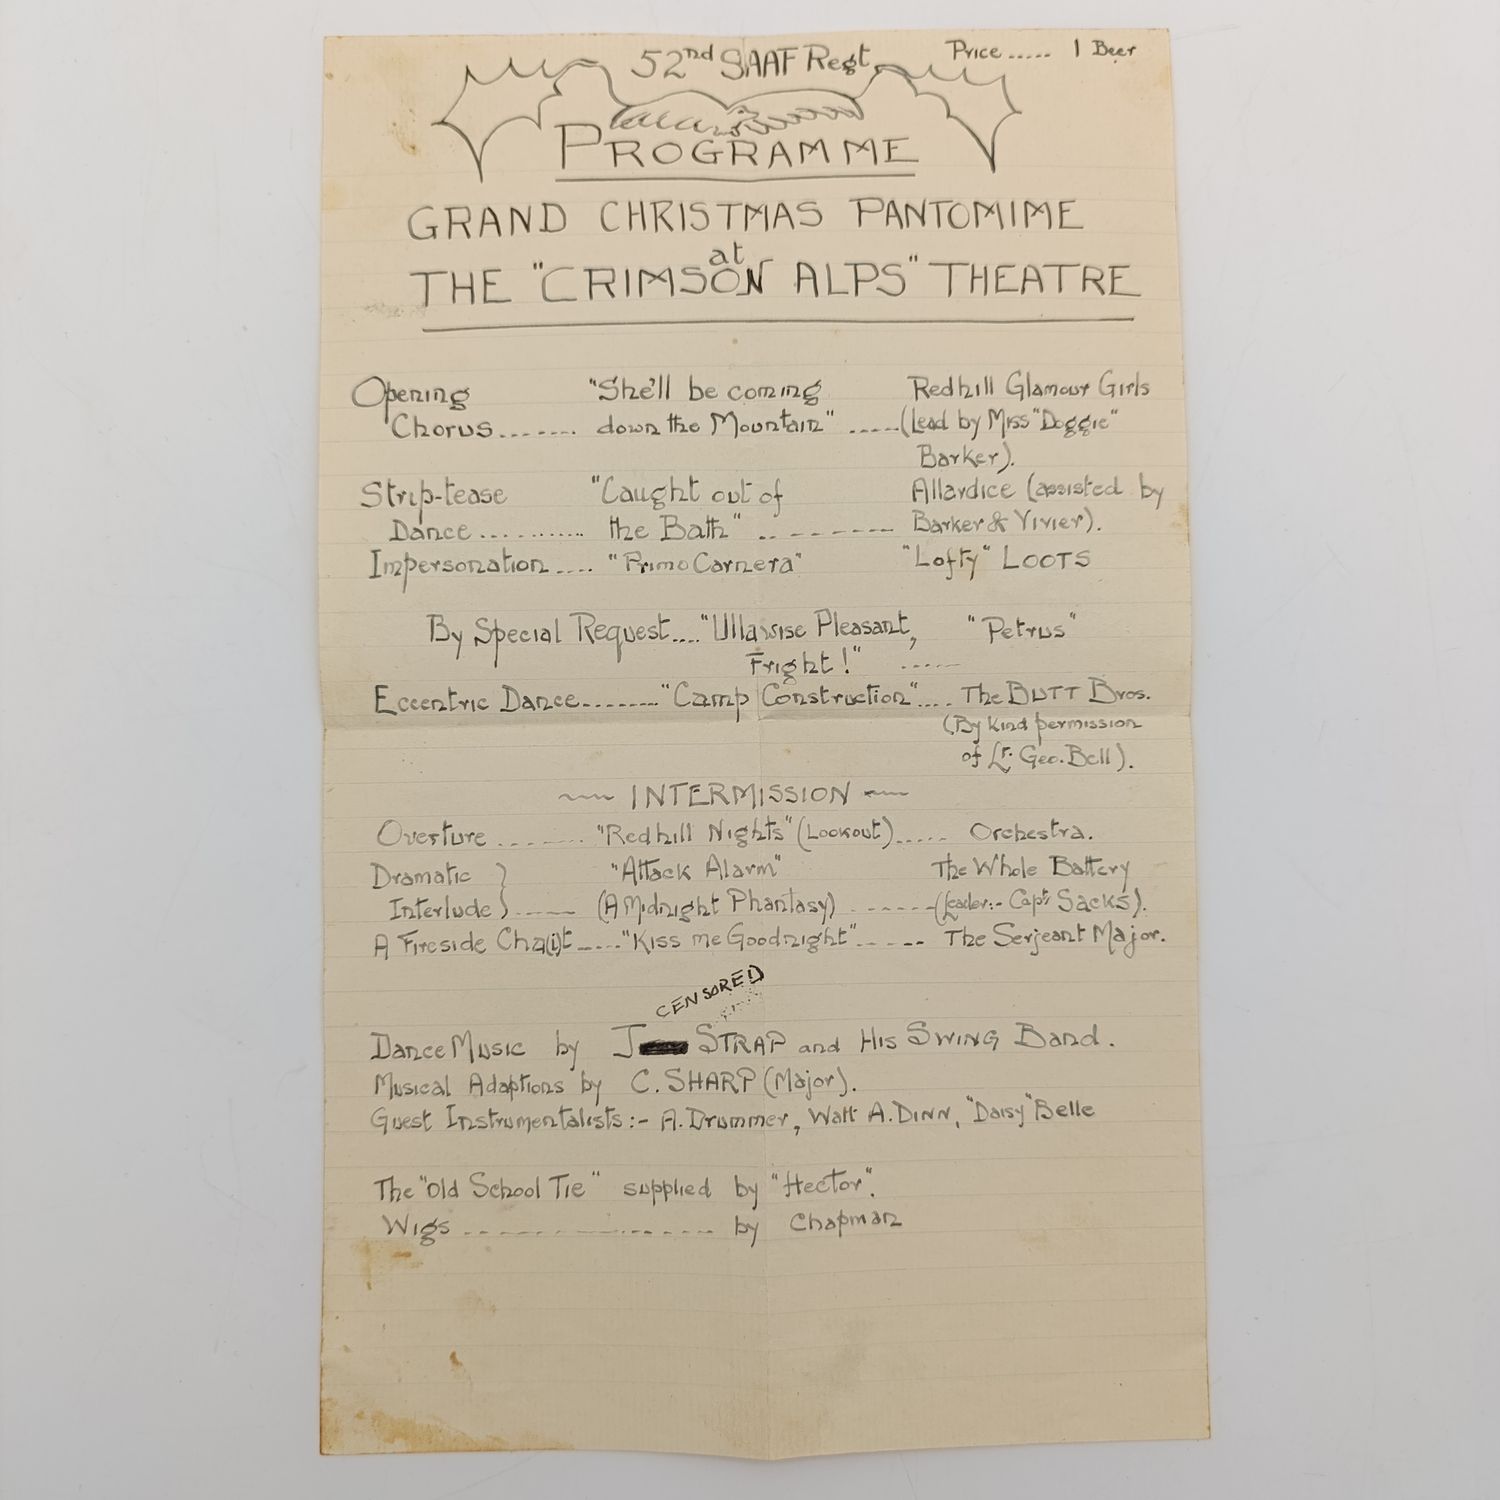 52nd SAAF Regt. Price ..... 1 Beer
PROGRAMME
GRAND CHRISTMAS PANTOMIME
at
THE "CRIMSON ALPS" THEATRE
Opening "She'll be coming Redhill Glamour Girls
Chorus ....... down the Mountain" ..... (Lead by Miss "Doggie"
Barker).
Strip-tease "Caught out of Allardice (assisted by
Dance .......... the Bath" .. ------ Barker & Vivier).
Impersonation .... "Primo Carnera" "Lofty" LOOTS
By Special Request .... "Ullawise Pleasant, "Petrus"
Fright!" .....
Eccentric Dance ........ "Camp Construction" .... The BUTT Bros.
(By kind permission
of Lt. Geo. Bell).
~~ INTERMISSION ~~
Overture ........ "Redhill Nights" (Lookout) ..... Orchestra.
Dramatic } "Attack Alarm" The Whole Battery
Interlude } ...... (A Midnight Phantasy) ...... (Leader:- Capt. Sacks).
A Fireside Cha(i)t ..... "Kiss me Goodnight" ..... The Serjeant Major.
CENSORED
Dance Music by J STRAP and His SWING Band.
Musical Adaptions by C. SHARP (Major).
Guest Instrumentalists:- A. Drummer, Watt A. DINN, "Daisy" Belle
The "Old School Tie" supplied by "Hector".
Wigs .................. by Chapman